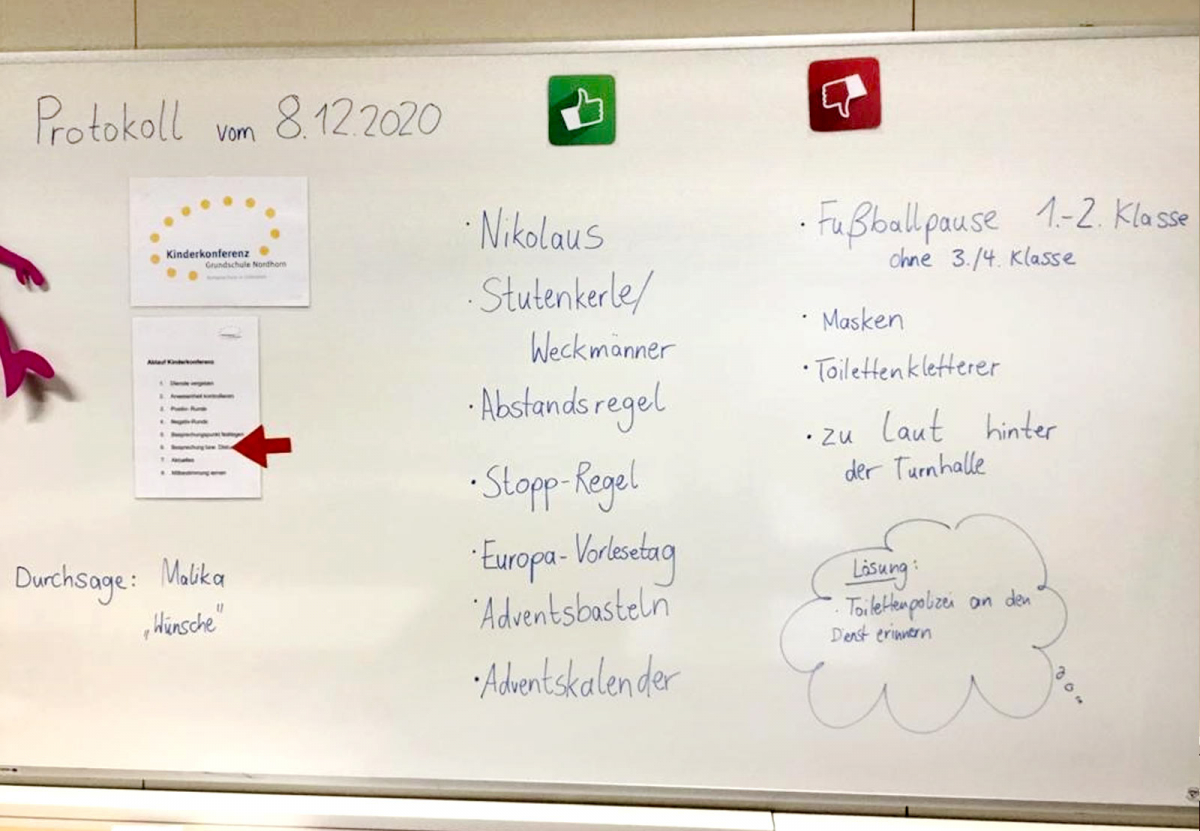 Protokoll vom 8.12.2020
Kinderkonferenz
Grundschule Nordhorn
Ablauf Kinderkonferenz
1. Dienste vergeben
2. Anwesenheit kontrollieren
3. Positiv-Runde
4. Negativ-Runde
5. Besprechungspunkt festlegen
6. Besprechung bzw.
7. Aktuelles
8. Mitbestimmung lernen
Durchsage: Malika
„Wünsche"
· Nikolaus
· Stutenkerle/
Weckmänner
· Abstandsregel
· Stopp-Regel
· Europa-Vorlesetag
· Adventsbasteln
· Adventskalender
· Fußballpause 1.-2. Klasse
ohne 3./4. Klasse
· Masken
· Toilettenkletterer
· zu laut hinter
der Turnhalle
Lösung:
· Toilettenpolizei an den
Dienst erinnern